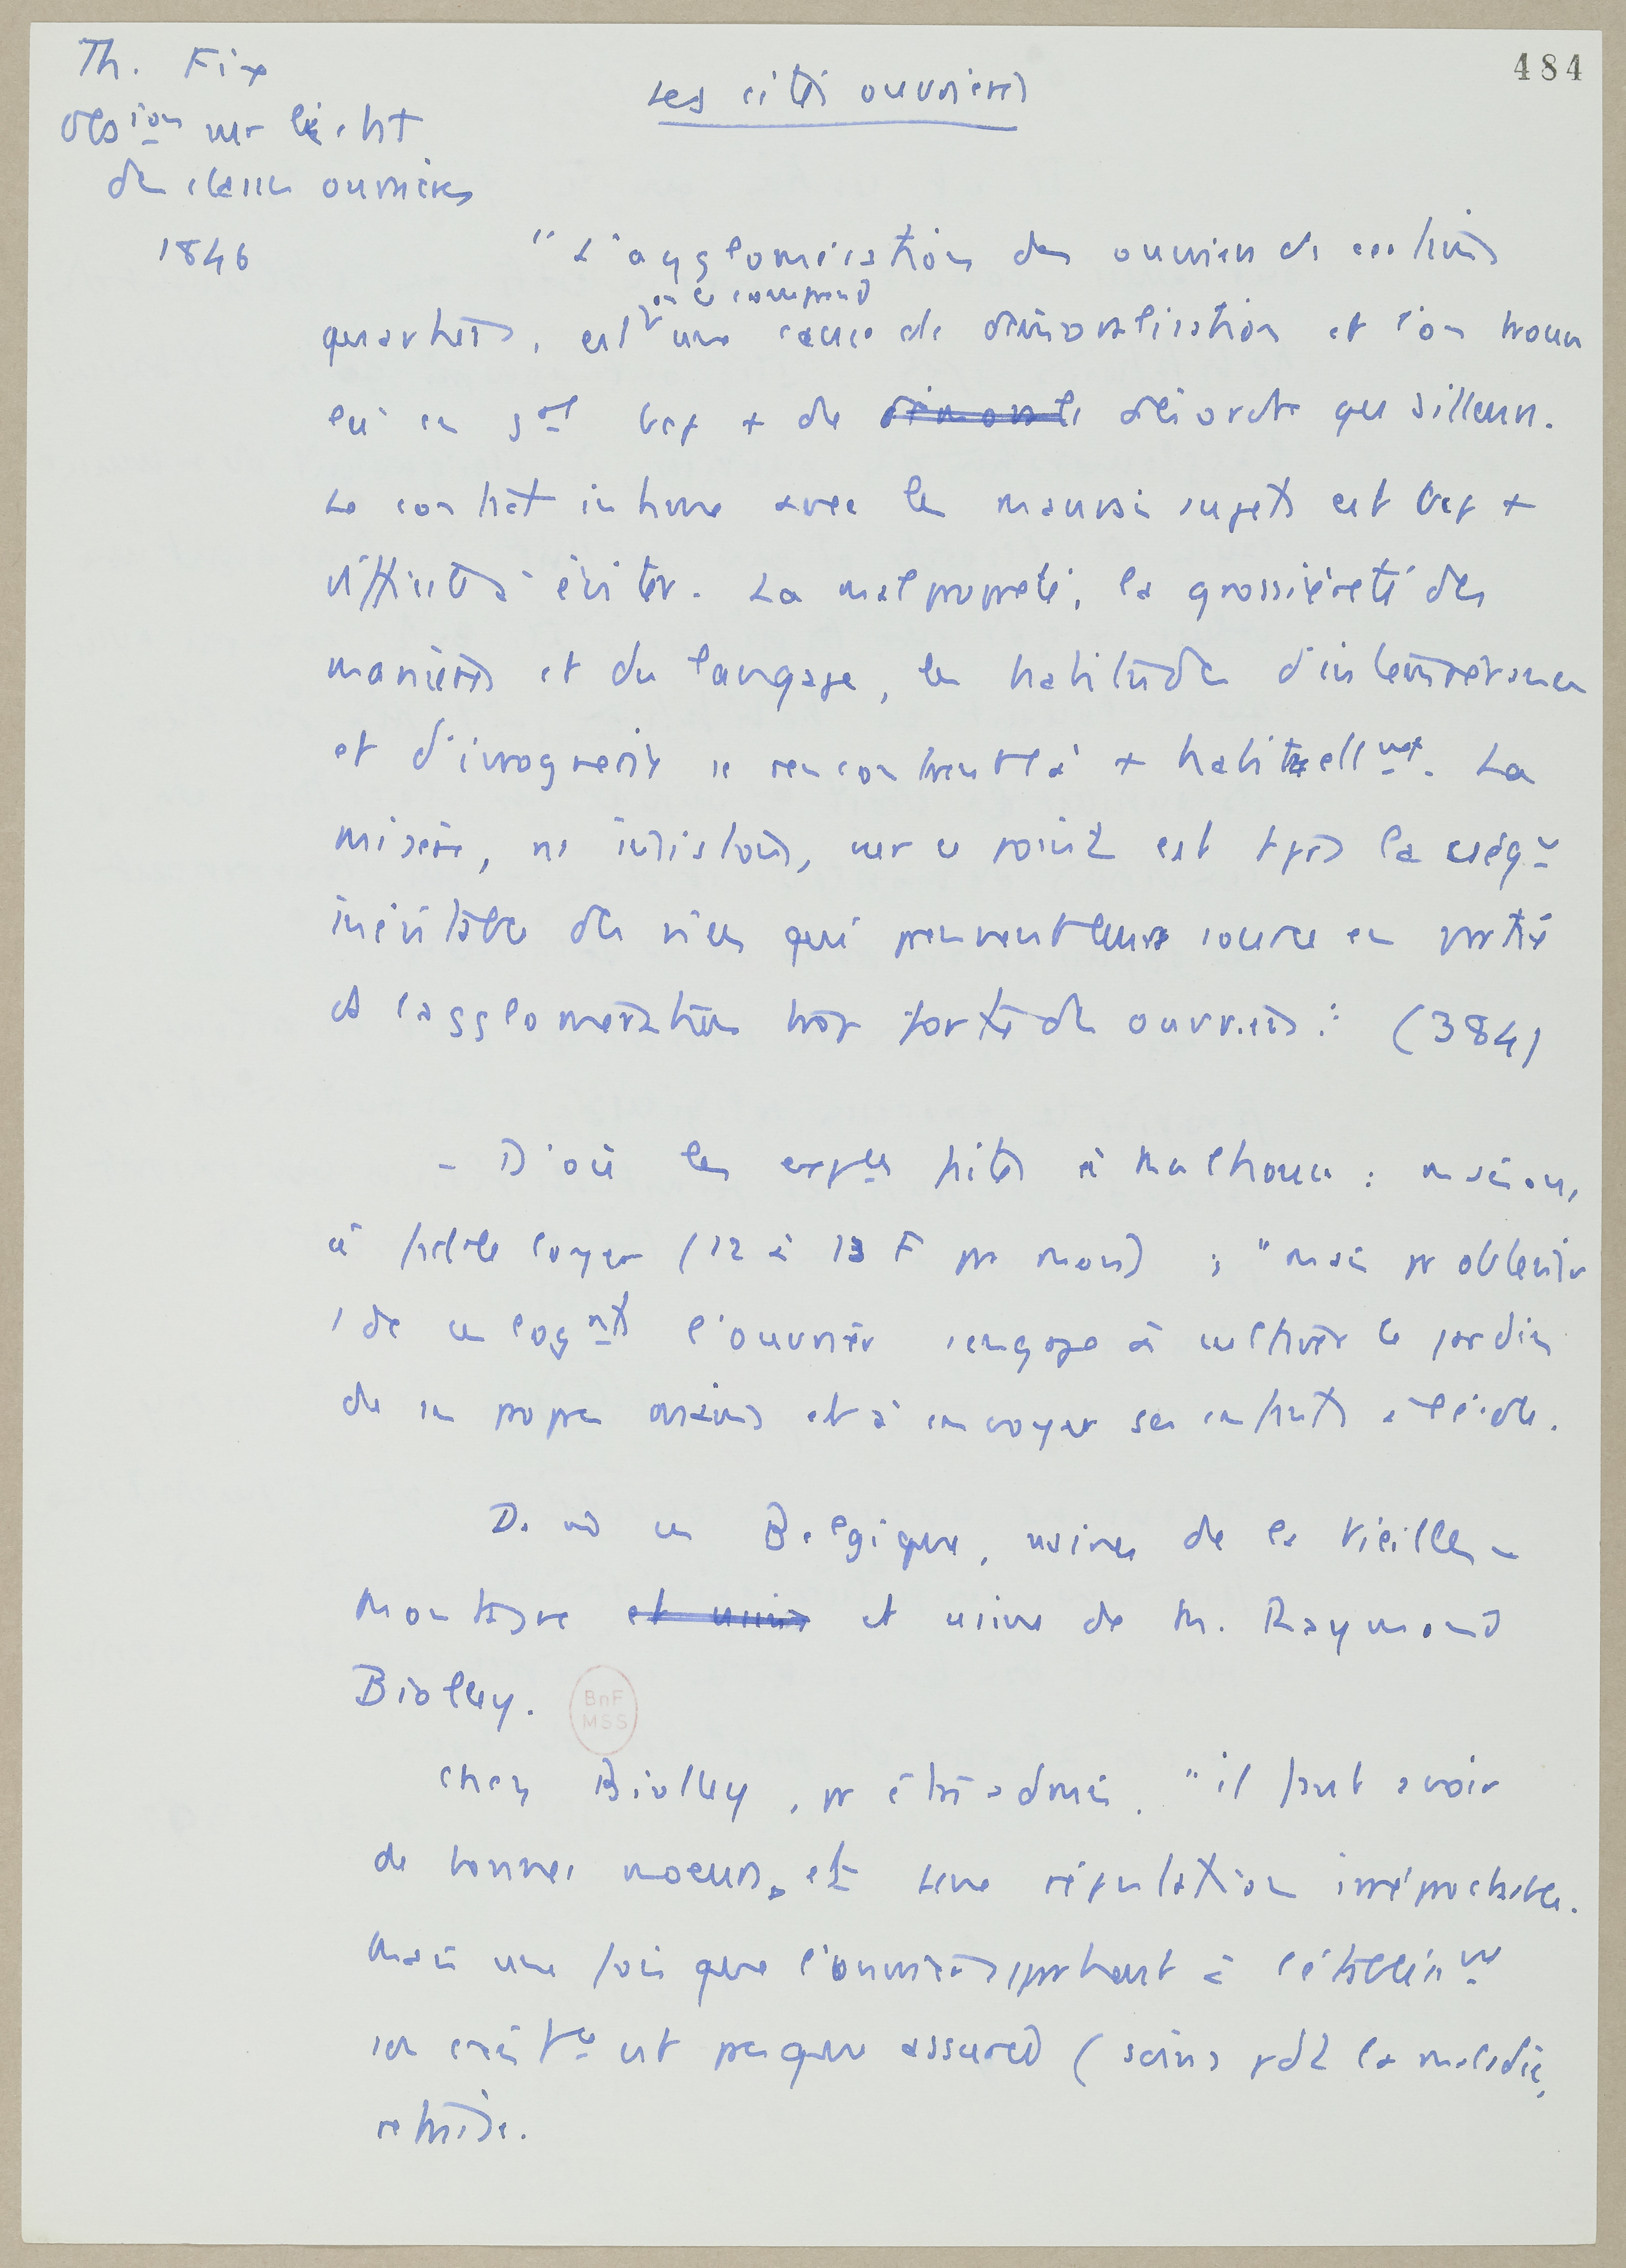 484
Th. Fix
Obs^ion sur l'état
des classes ouvrières
1846
Les cités ouvrières
"L'agglomération des ouvriers ds certains
quartiers, est, on le comprend, une cause de démoralisation et l'on trouve
là en g^al bcp + de démorali désordre qu'ailleurs.
Le contact intime avec les mauvais sujets est bcp +
difficile à éviter. La malpropreté, la grossièreté des
manières et du langage, les habitudes d'intempérance
et d'ivrognerie se rencontrent là + habituell^mt. La
misère, ns insistons, sur ce point est tjrs la
inévitable des vices qui prennent leur source en partie
ds l'agglomération trop forte des ouvriers." (384)
- D'où les faites à Mulhouse : maisons,
à petits loyer (12 à 13 F par mois) ; "mais pr obtenir
1 de ces log^nts l'ouvrier s'engage à cultiver le jardin
de ses propres mains et à envoyer ses enfants à l'école.
D. en Belgique, usines de la Vieille-
Montagne et usines et usine de M. Raymond
Biolley.
Chez Biolley, pr être admis, "il faut avoir
de bonnes moeurs, et une réputation irréprochable.
Mais une fois que l'ouvrier appartient à l'établiss^nt
son exist^ce est presque assurée (soins pdt la maladie,
retraite.
BnF
MSS